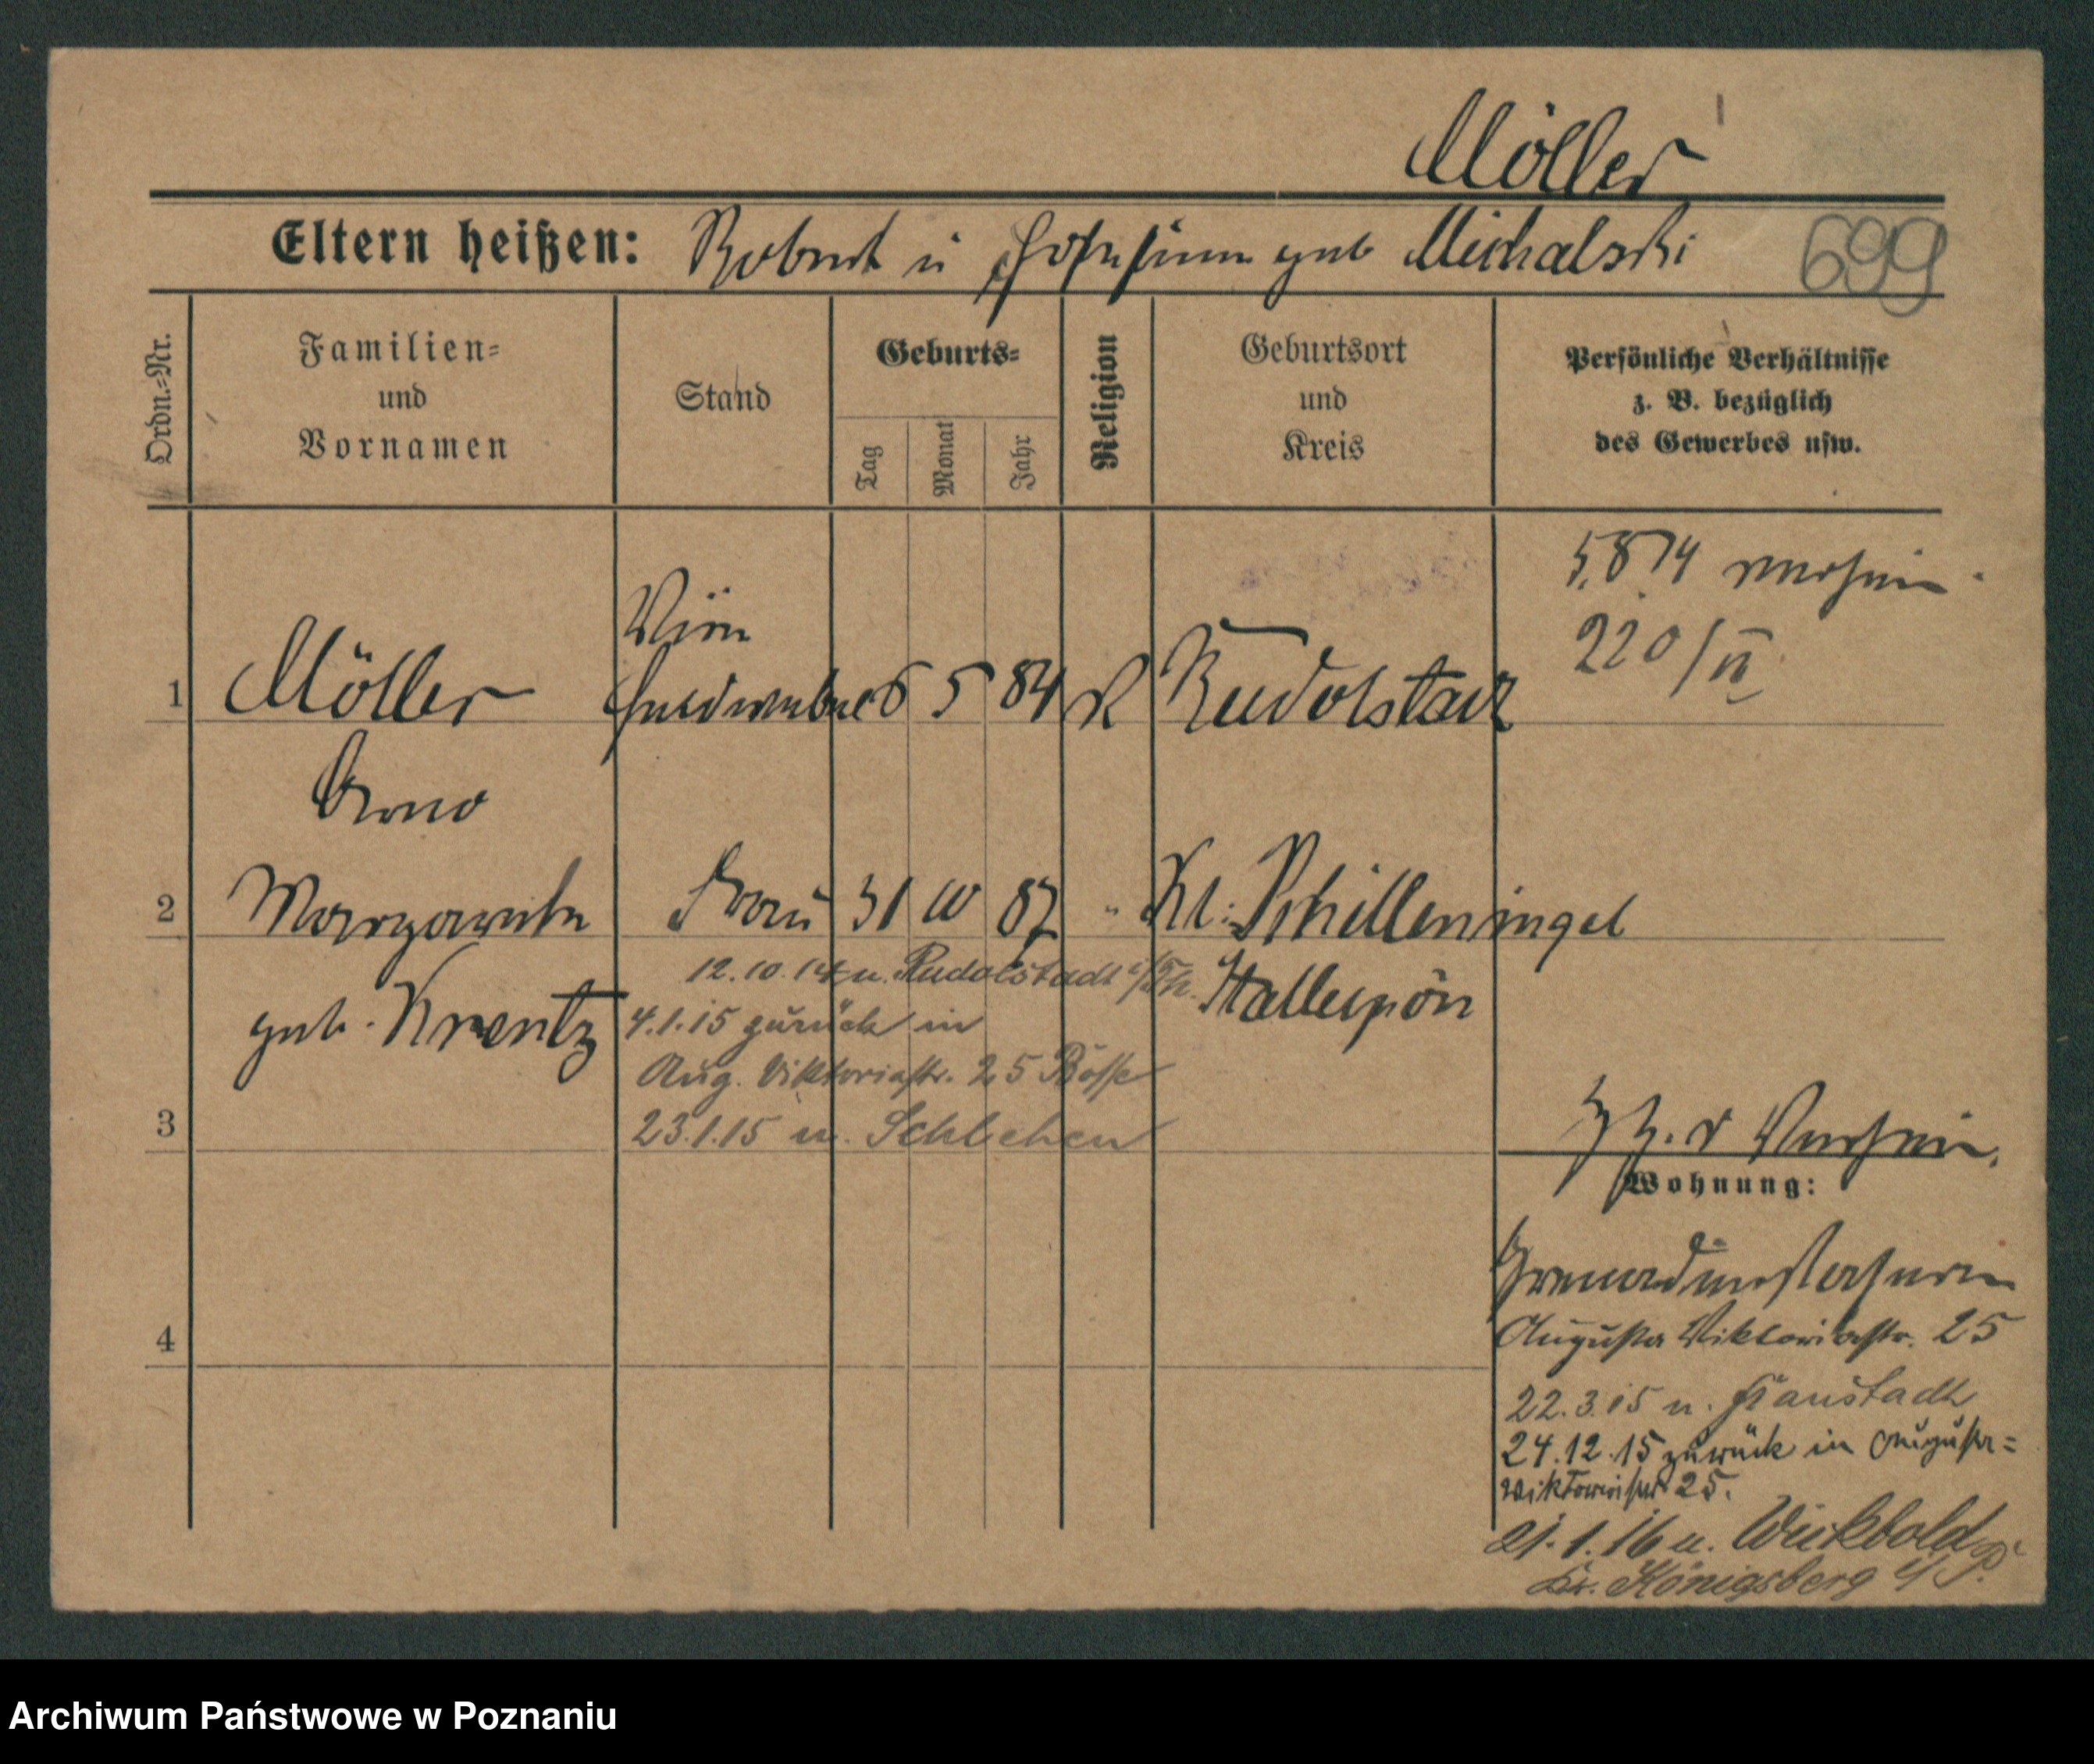 Möller
Eltern heißen: Robert u Josefine geb Michalski
699
Ordn.-Nr.
Familien-
und
Vornamen
Stand
Geburts-
Tag
Monat
Jahr
Religion
Geburtsort
und
Kreis
Persönliche Verhältnisse
z. B. bezüglich
des Gewerbes usw.
5.8 14
220/II
1 Möller 6 5 84 K Rudolstadt
Arno
2 Margarete Frau 31 10 87 " Kl: Schilleningel
geb. Krentz
Stallupön
12.10.14 u. Rudolstadt i/Th.
4.1.15 zurück in
Aug. Viktoriastr. 25
23.1.15 u. Schlehen
3
Wohnung:
4
Grenadierkaserne
Augusta Viktoriastr. 25
22.3.15 u. Fraustadt
24.12.15 zurück in Augusta=
Viktoriastr 25.
21.1.16 u. Wickbold
Kr. Königsberg i/P.
Archiwum Państwowe w Poznaniu